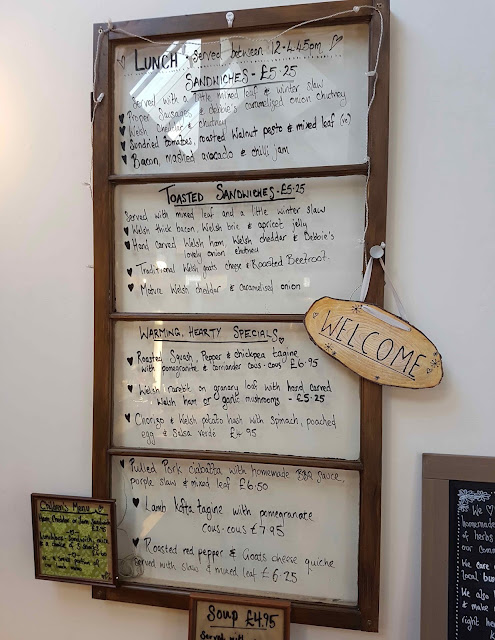 LUNCH - Served between 12-2.45pm
SANDWICHES - £5.25
Served with a little mixed leaf & winter slaw
Proper Sausages & debbie's caramelised onion chutney
Welsh Cheddar & chutney
Sundried tomatoes, roasted walnut pesto & mixed leaf (ve)
Bacon, mashed avocado & chilli jam
TOASTED SANDWICHES - £5.25
Served with mixed leaf and a little winter slaw
Welsh thick bacon, Welsh brie & apricot jelly
Hand Carved Welsh ham, Welsh cheddar & Debbie's
lovely onion chutney
Traditional Welsh goats cheese & Roasted Beetroot.
Mature Welsh cheddar & caramelised onion
WARMING, HEARTY SPECIALS
Roasted Squash, Pepper & chickpea tagine
with pomegranate & corriander cous-cous £6.95
Welsh rarebit on granary loaf with hand carved
Welsh ham or garlic mushrooms - £5.25
Chorizo & Welsh potato hash with spinach, poached
egg & Salsa verde £4.95
Pulled Pork ciabatta with homemade BBQ sauce,
purple slaw & mixed leaf £6.50
Lamb Kofta tagine with pomegranate
cous-cous £7.95
Roasted red pepper & Goats cheese quiche
Served with slaw & mixed leaf £6.25
WELCOME
Children's Menu
SOUP £4.95
Served with
We
homemade
of herbs
our
We care
local
We also
& make
right here